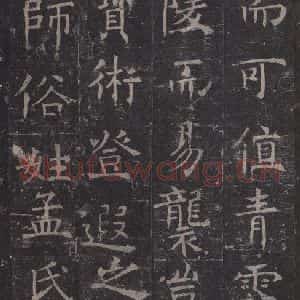 而可值青雲
陵而易襲豈
術登遐之
師俗姓孟氏
shufawang.cn